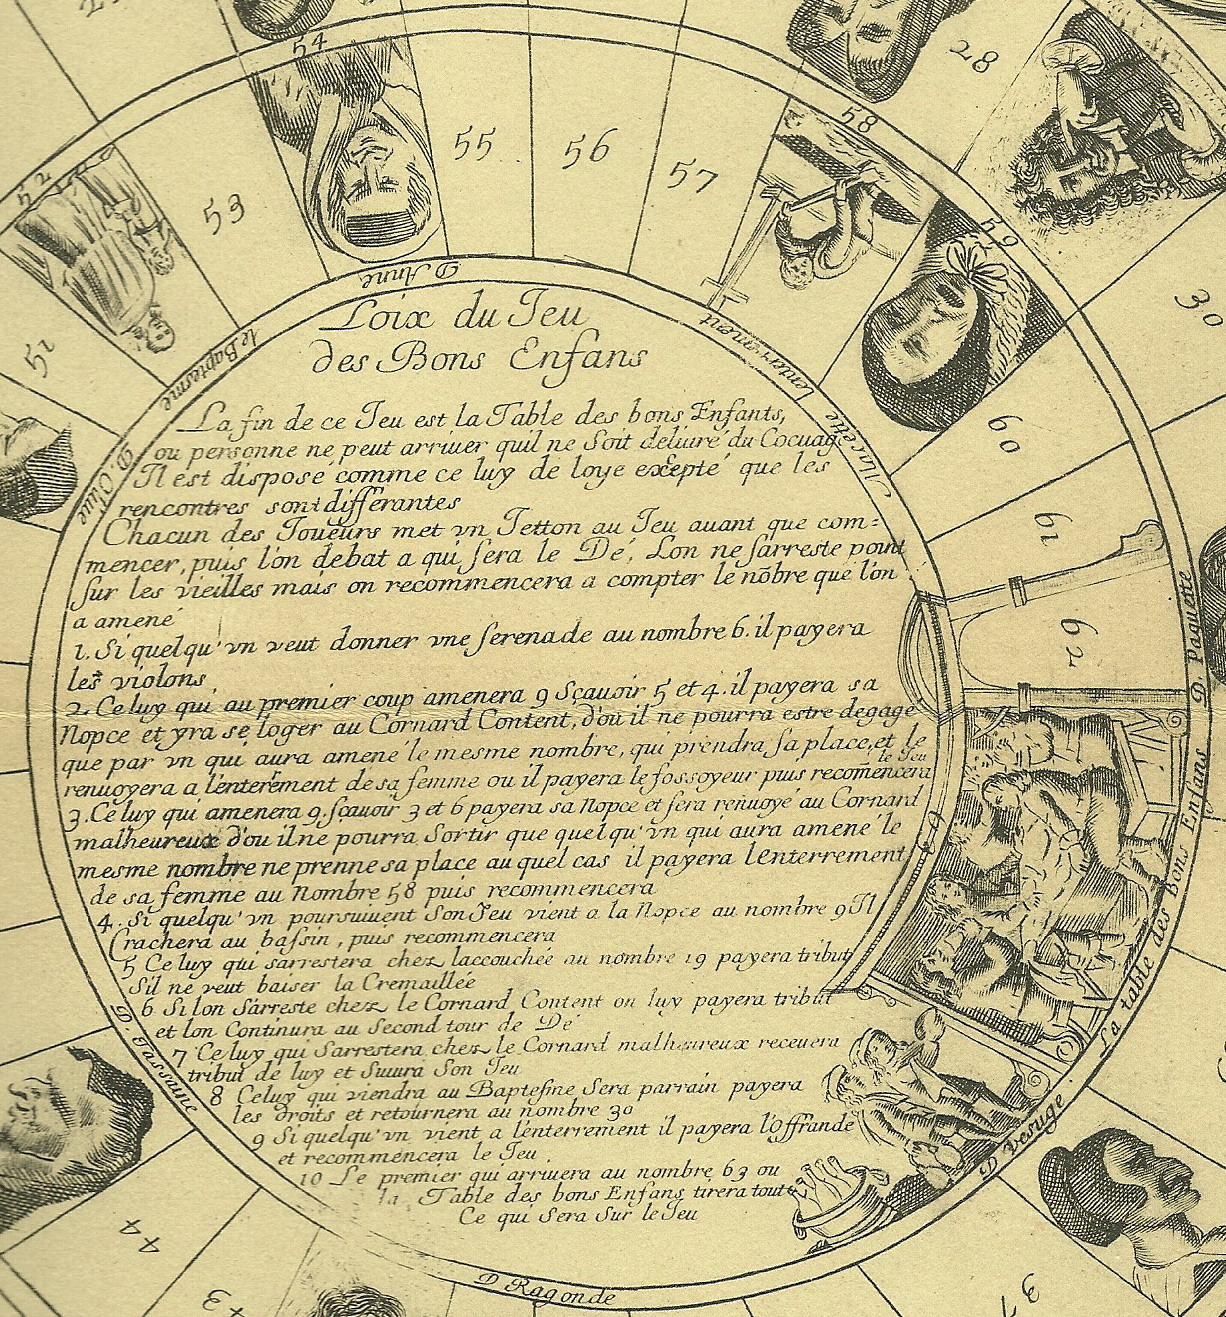 Loix du Jeu
des Bons Enfans
La fin de ce Jeu est la Table des bons Enfants,
ou personne ne peut arriuer quil ne Soit deliuré du Cocuage
Il est disposé comme ce luy de loye excepté que les
rencontres sont differantes
Chacun des Joueurs met vn Jetton au Jeu auant que com=
mencer, puis l'on debat a qui sera le Dé, Lon ne sarreste point
sur les vieilles mais on recommencera a compter le nõbre que l'on
a amené
1. Si quelqu'vn veut donner vne serenade au nombre 6. il payera
les violons
2 Celuy qui au premier coup amenera 9 Sçauoir 5 et 4. il payera sa
Nopce et yra se loger au Cornard Content, d'ou il ne pourra estre degagé
que par vn qui aura amené le mesme nombre, qui prendra sa place, et le
renuoyera a l'enterement de sa femme ou il payera le fossoyeur puis recomencera
le Jeu
3. Celuy qui amenera 9. sçauoir 3 et 6 payera sa Nopce et sera renuoyé au Cornard
malheureux d'ou il ne pourra Sortir que quelqu'vn qui aura amené le
mesme nombre ne prenne sa place au quel cas il payera lEnterrement
de sa femme au Nombre 58 puis recommencera
4. Si quelqu'vn poursuiuent Son Jeu vient a la Nopce au nombre 9 Il
Crachera au bassin, puis recommencera
5 Celuy qui sarrestera chez laccouchée au nombre 19 payera tribut
Sil ne veut baiser la Cremaillée
6 Si lon Sarreste chez le Cornard Content on luy payera tribut
et lon Continura au Second tour de Dé
7 Celuy qui Sarrestera chez le Cornard malheureux receuera
tribut de luy et Suiura Son Jeu
8 Celuy qui viendra au Baptesme Sera parrain payera
les droits et retournera au nombre 30
9 Si quelqu'vn vient a l'enterrement il payera l'Offrande
et recommencera le Jeu.
10 Le premier qui arriuera au nombre 63 ou
la Table des bons Enfans tirera toute
Ce qui Sera Sur le Jeu
51
52
le Baptesme
53
54
D Anne
55
56
57
58
lenterrement
59
Marotte
60
61
62
63
La table des Bons Enfans
D. Paquette
D Vesuge
D Ragonde
D. Jassane
44
43
37
28
30